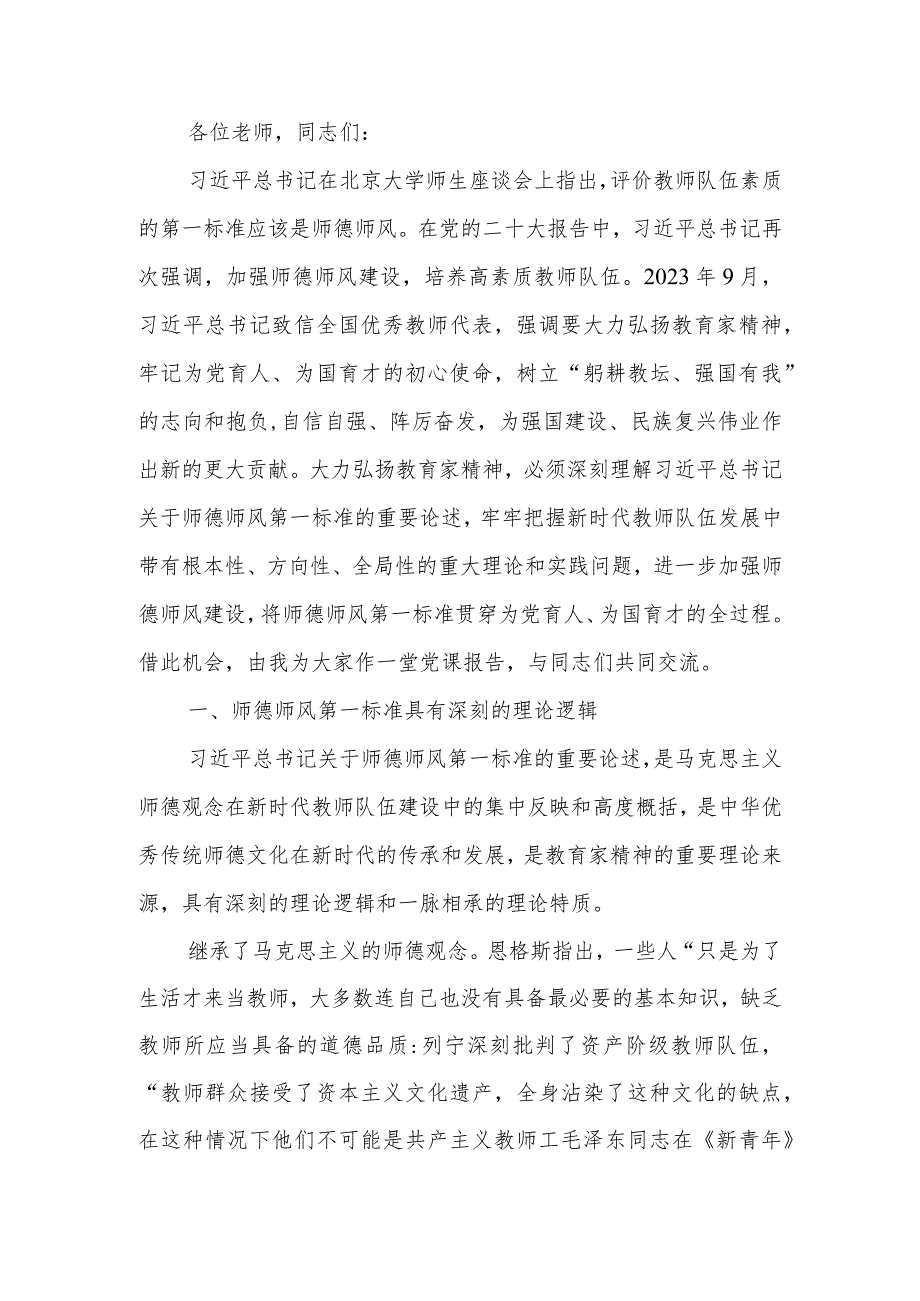 各位老师，同志们：
习近平总书记在北京大学师生座谈会上指出,评价教师队伍素质
的第一标准应该是师德师风。在党的二十大报告中，习近平总书记再
次强调，加强师德师风建设，培养高素质教师队伍。2023年9月，
习近平总书记致信全国优秀教师代表，强调要大力弘扬教育家精神，
牢记为党育人、为国育才的初心使命，树立“躬耕教坛、强国有我”
的志向和抱负,自信自强、阵厉奋发，为强国建设、民族复兴伟业作
出新的更大贡献。大力弘扬教育家精神，必须深刻理解习近平总书记
关于师德师风第一标准的重要论述，牢牢把握新时代教师队伍发展中
带有根本性、方向性、全局性的重大理论和实践问题，进一步加强师
德师风建设,将师德师风第一标准贯穿为党育人、为国育才的全过程。
借此机会，由我为大家作一堂党课报告，与同志们共同交流。
一、师德师风第一标准具有深刻的理论逻辑
习近平总书记关于师德师风第一标准的重要论述,是马克思主义
师德观念在新时代教师队伍建设中的集中反映和高度概括，是中华优
秀传统师德文化在新时代的传承和发展，是教育家精神的重要理论来
源，具有深刻的理论逻辑和一脉相承的理论特质。
继承了马克思主义的师德观念。恩格斯指出，一些人“只是为了
生活才来当教师，大多数连自己也没有具备最必要的基本知识，缺乏
教师所应当具备的道德品质:列宁深刻批判了资产阶级教师队伍，
“教师群众接受了资本主义文化遗产，全身沾染了这种文化的缺点，
在这种情况下他们不可能是共产主义教师工毛泽东同志在《新青年》